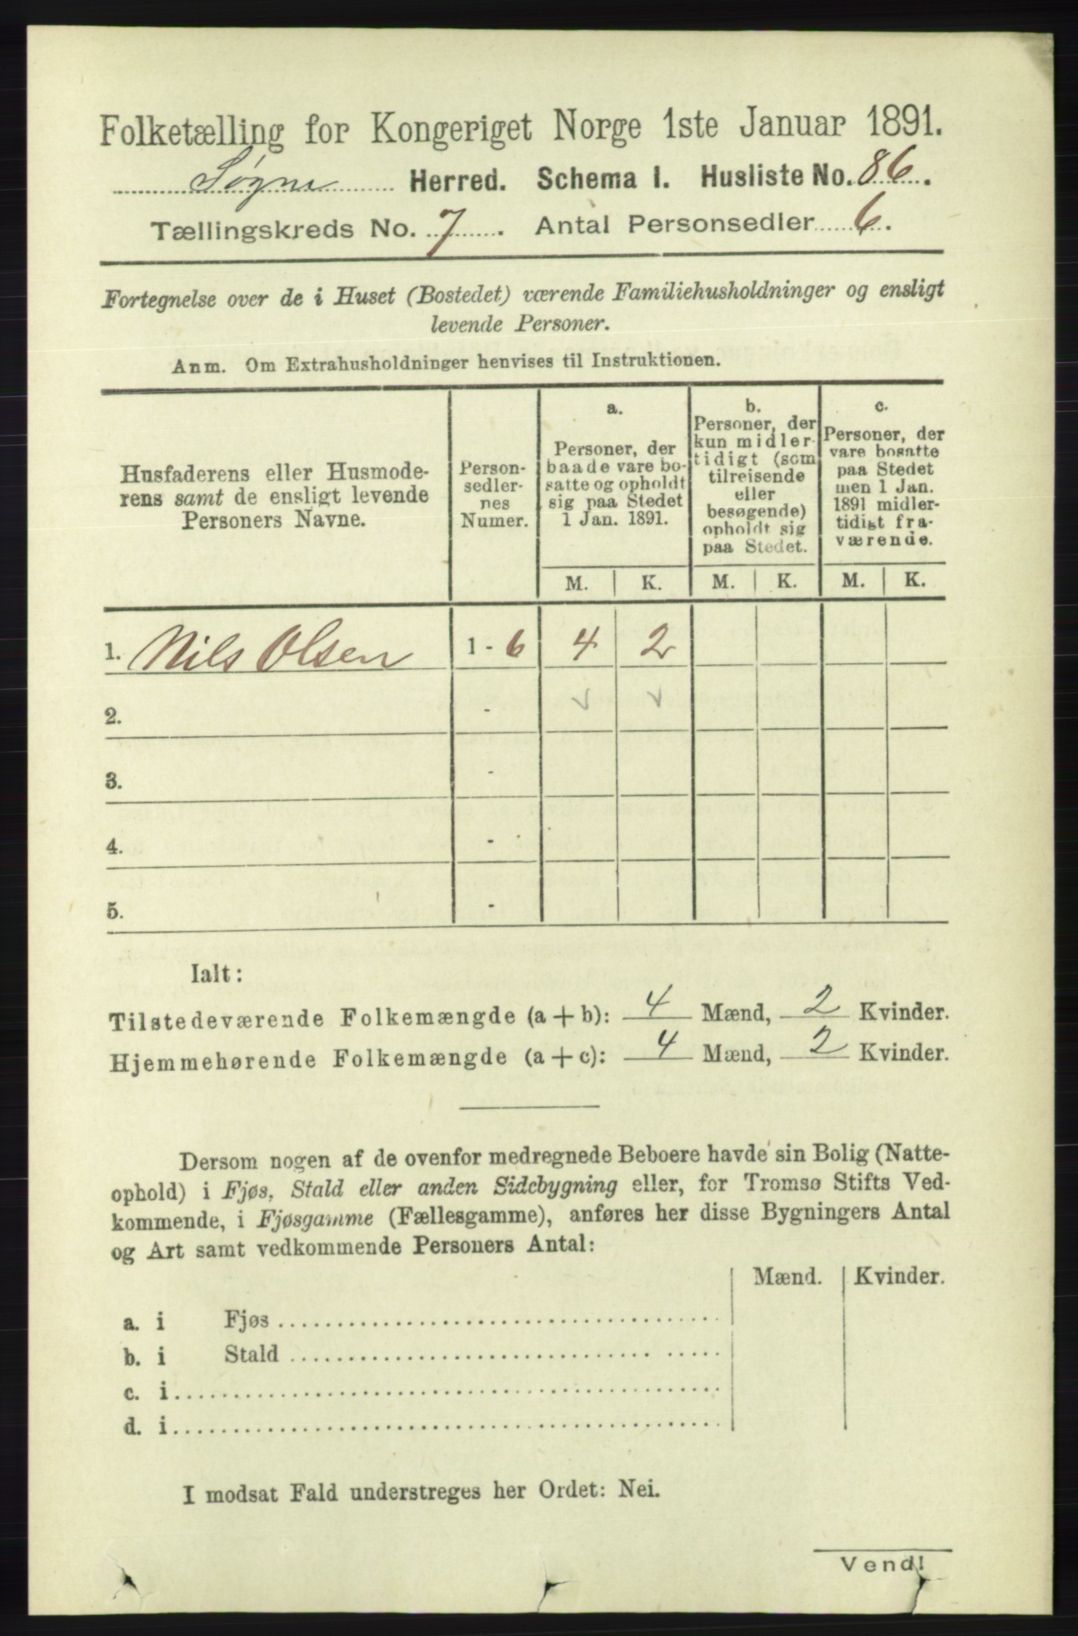 Folketælling for Kongeriget Norge 1ste Januar 1891.
Søgne Herred. Schema I. Husliste No. 86.
Tællingskreds No. 7. Antal Personsedler 6.
Fortegnelse over de i Huset (Bostedet) værende Familiehusholdninger og ensligt
levende Personer.
Anm. Om Extrahusholdninger henvises til Instruktionen.
Husfaderens eller Husmode-
rens samt de ensligt levende
Personers Navne.
Person-
sedler-
nes
Numer.
a.
Personer, der
baade vare bo-
satte og opholdt
sig paa Stedet
1 Jan. 1891.
b.
Personer, der
kun midler-
tidigt (som
tilreisende
eller
besøgende)
opholdt sig
paa Stedet.
c.
Personer, der
vare bosatte
paa Stedet
men 1 Jan.
1891 midler-
tidigt fra-
værende.
M. K. M. K. M. K.
1. Nils Olsen 1 - 6 4 2
2. - ✓ ✓
3. -
4. -
5. -
Ialt:
Tilstedeværende Folkemængde (a + b): 4 Mænd, 2 Kvinder.
Hjemmehørende Folkemængde (a + c): 4 Mænd, 2 Kvinder.
Dersom nogen af de ovenfor medregnede Beboere havde sin Bolig (Natte-
ophold) i Fjøs, Stald eller anden Sidebygning eller, for Tromsø Stifts Ved-
kommende, i Fjøsgamme (Fællesgamme), anføres her disse Bygningers Antal
og Art samt vedkommende Personers Antal:
Mænd. Kvinder.
a. i Fjøs
b. i Stald
c. i
d. i
I modsat Fald understreges her Ordet: Nei.
Vend!